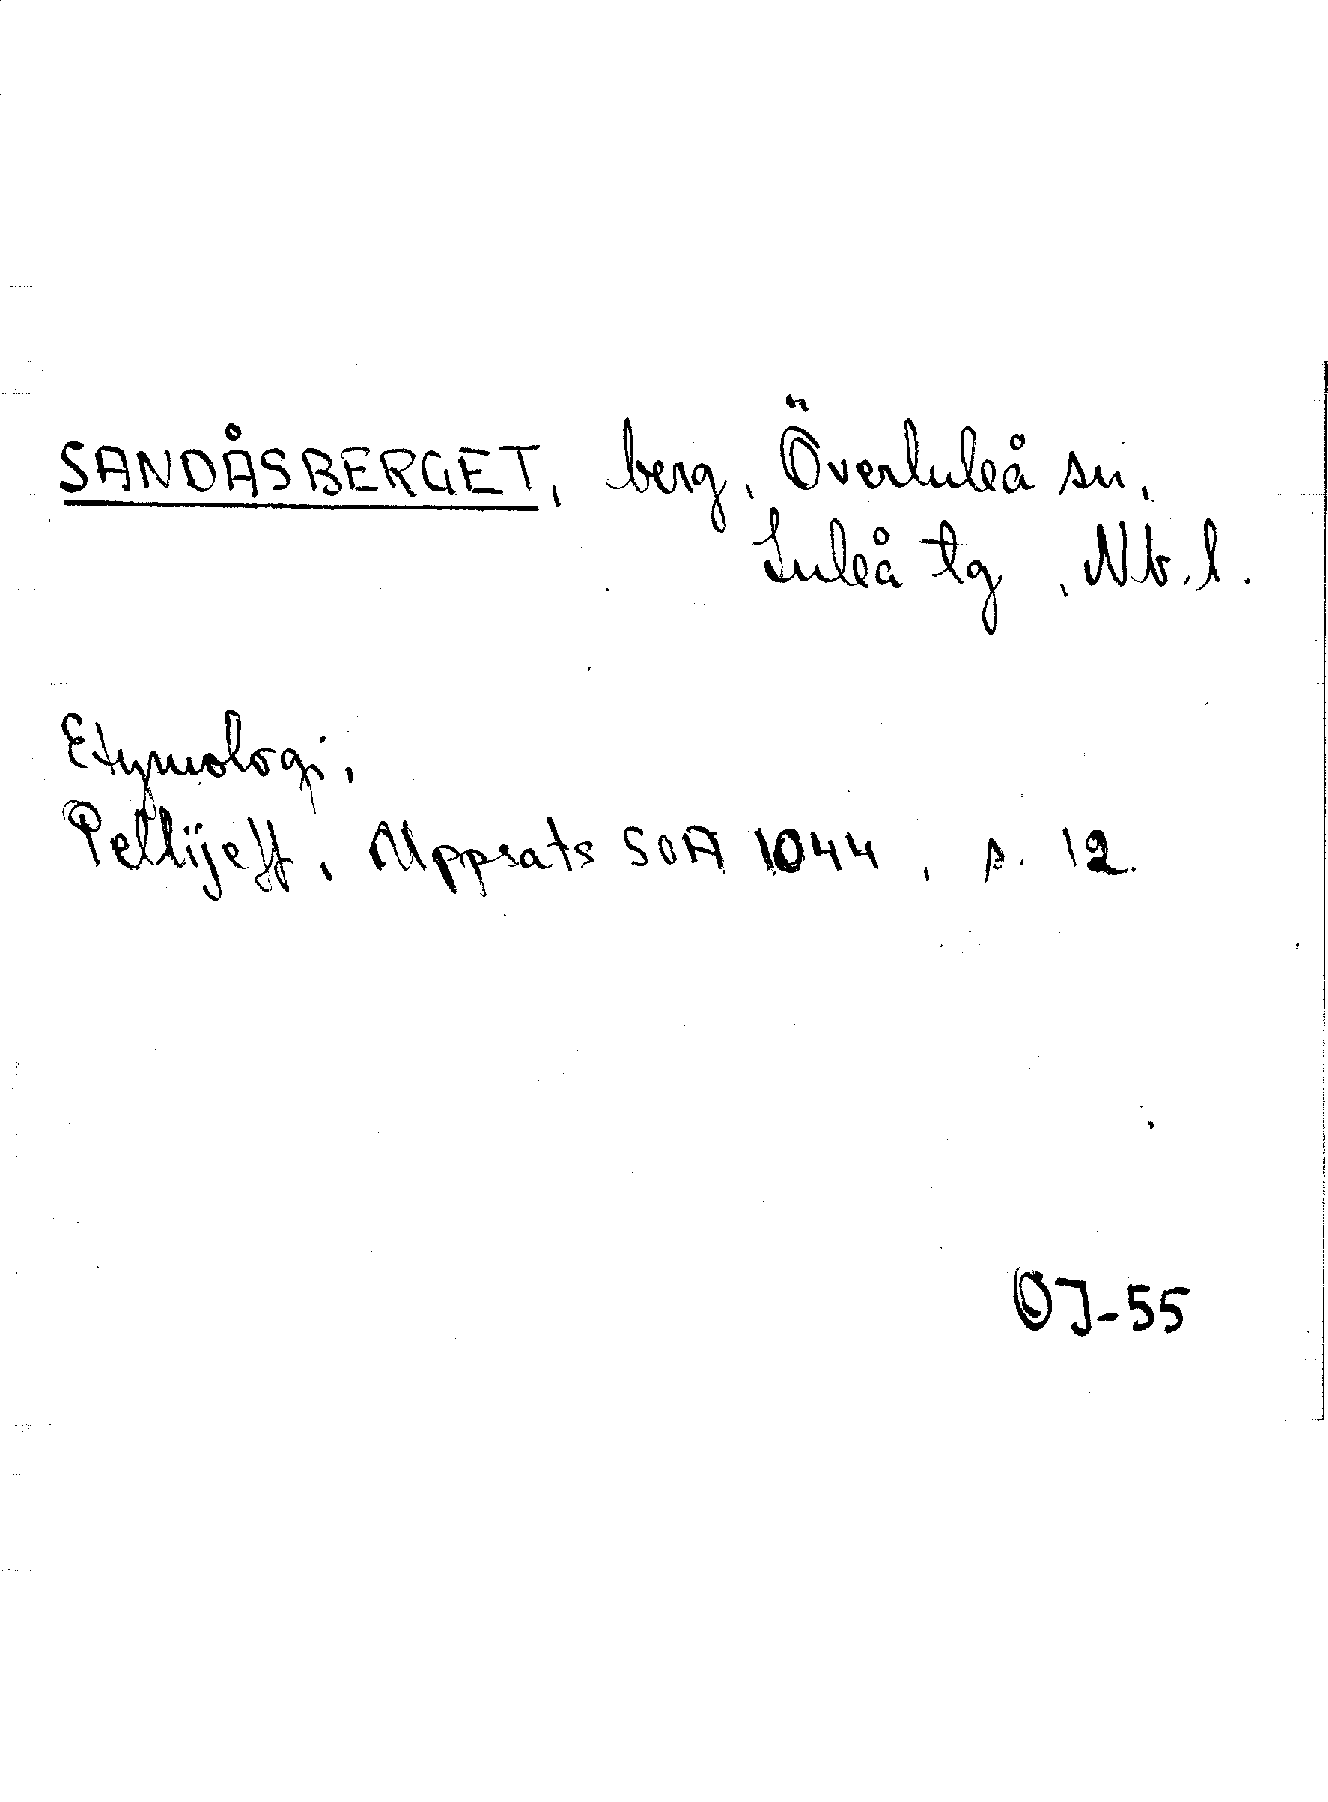 SANDÅSBERGET, berg, Överluleå sn,
Luleå tg, Nb.l.
Etymologi,
Pellijeff, Uppsats SOA 1044, s. 12.
OJ-55